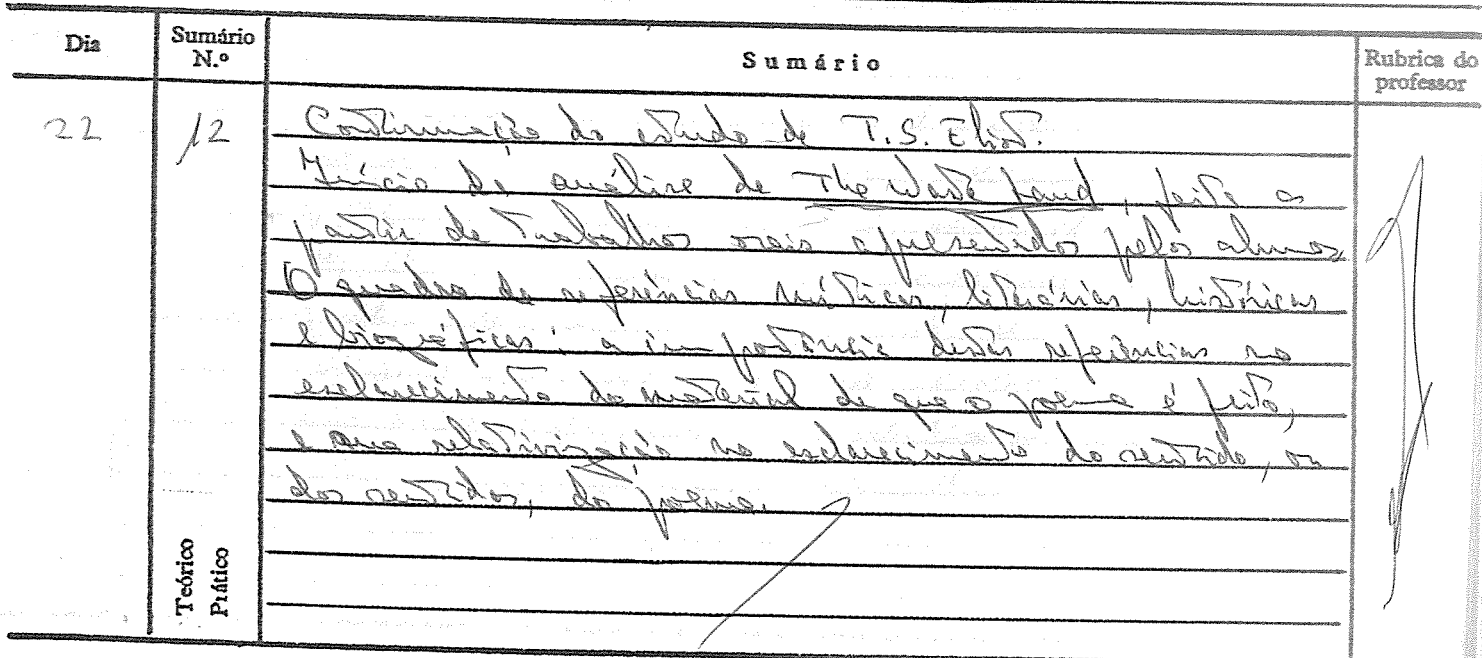 Dia Sumário N.º Sumário Rubrica do professor
22 12 Continuação do estudo de T.S. Eliot.
Início da análise de The Waste Land, feita a
partir de trabalhos orais apresentados pelos alunos.
O quadro de referências míticas, literárias, históricas
e biográficas: a importância destas referências no
esclarecimento do material de que o poema é feito,
e sua relativização no esclarecimento do sentido, ou
dos sentidos, do poema.
Teórico
Prático